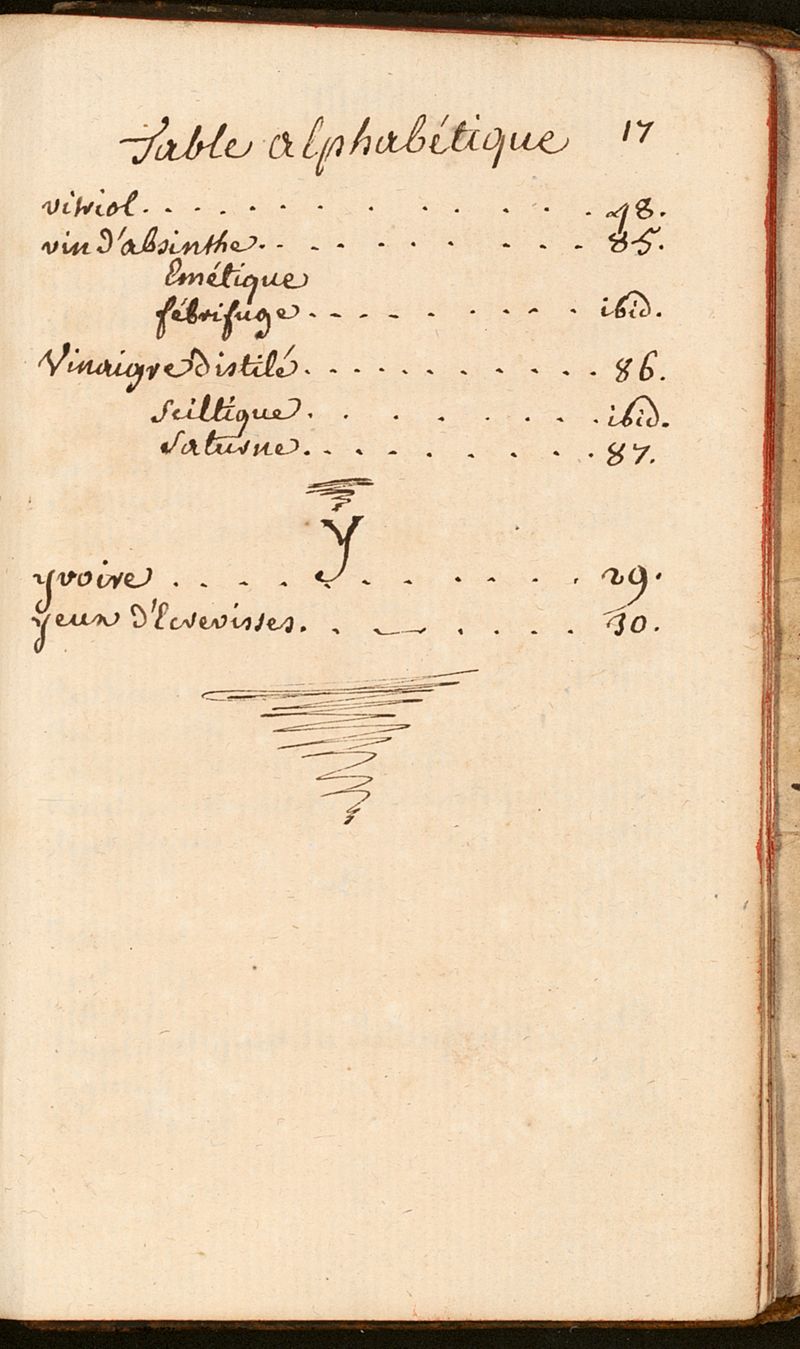 Table alphabétique 17
vitriol. . . . . . . . . . . . . . 48.
vin d'absinthe. . . . . . . . . . . 85.
Emétique
fébrifuge . . . . . . . . . ibid.
Vinaigre distilé. . . . . . . . . . . 86.
Scillitique. . . . . . . . . ibid.
Saturne. . . . . . . . . . 87.
Y
yvoire . . . . . . . . . . . . 29.
yeux d'Ecrevisses. . . . . . . 30.